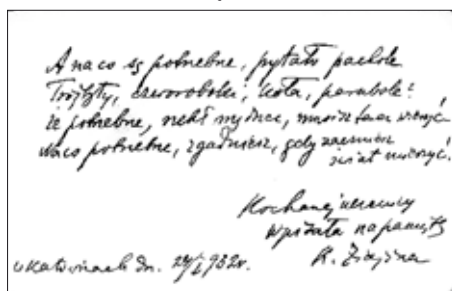 A na co są potrzebne, pytało pacholę
Trójkąty, czworoboki, koła, parabole?
Że potrzebne, rzekł mędrzec, musisz teraz wierzyć!
Na co potrzebne, zgadniesz, gdy zaczniesz
świat mierzyć!
Kochanej uczennicy
wpisała na pamiątkę
R.
w Katowicach dn. 1932r.